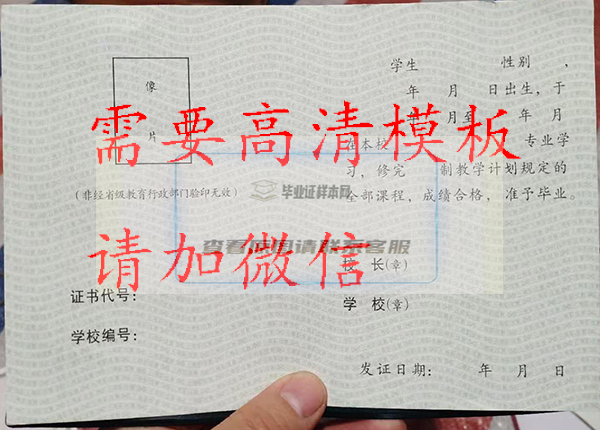 学生 性别 ,
像
年 月 日出生,于
需要高清模板
年 月至 年 月
片
在本校 专业学
习,修完 制教学计划规定的
(非经省级教育行政部门验印无效)
毕业证样本网
全部课程,成绩合格,准予毕业。
查看原图请联系客服
请加微信
校 长(章)
证书代号:
学 校(章)
学校编号:
发证日期: 年 月 日